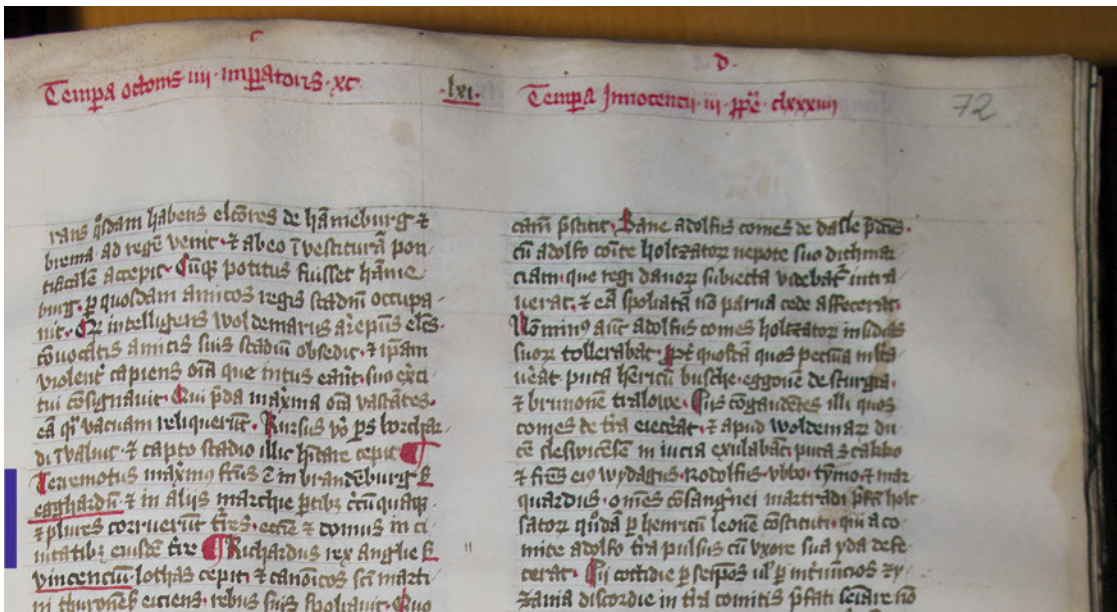 c
D
Tempa octonis iiii impatoris xc
lxi
Tempa Innocencii iii ppe clxxxiiii
72
rans qsdam habens elcores de hameburg &
brema ad rege venit & ab eo i vestitura pon
tificale accepit Cuq potitus fuisset hame
burg p quosdam amicos regis stadiu occupa
uit Qr intelligens woldemarus arepus elcs
covocatis amicis suis stadiu obsedit & ipam
violent capiens oia que intus erant suo exci
tui cosignavit Qui pda maxima oia vastates
ea qi vacuam reliquerut Rursus vo ps borchar
di valuit & capto stadio illic hitare cepit
Terremotus maximus fcus e in brandeburg
egghardu & in aliis marchie ptibz ctu quaq
& plures corruerut tres eccie & domus in ci
uitatibz eiusde tre Richardus rex anglie
vincenciu lothas cepit & canoicos sci marti
in thuroness eiciens rebus suis spoliauit Quo
cam pstitit Sane adolfus comes de dasle pdcus
cu adolfo coite holtzatoz nepote suo dithmar
ciam que regi danoz subiecta videbat intra
uerat & ea spoliata no parua cede affecerat
No minus aut adolfus comes holtzatoz insidias
suoz tollerabat pt quosda quos pecuia
uerat puta henricu busche eggone de sturgia
& brunone tralowe Hiis cogaudetes illi quos
comes de tra eiecerat & apud woldemar du
ce sleswicese in iucia exulabat puta scakko
& fres eius wydagus Rodolfus vbbo tymo & mar
quardus omes cosagnei martiradi pfca holt
satoz quda p henricu leone costituti qui a co
mite adolfo tra pulsus cu vxore sua yda defe
cerat Hii cottidie p seipos ul p internuncios zy
zania discordie in tra comitis pfati seiare no